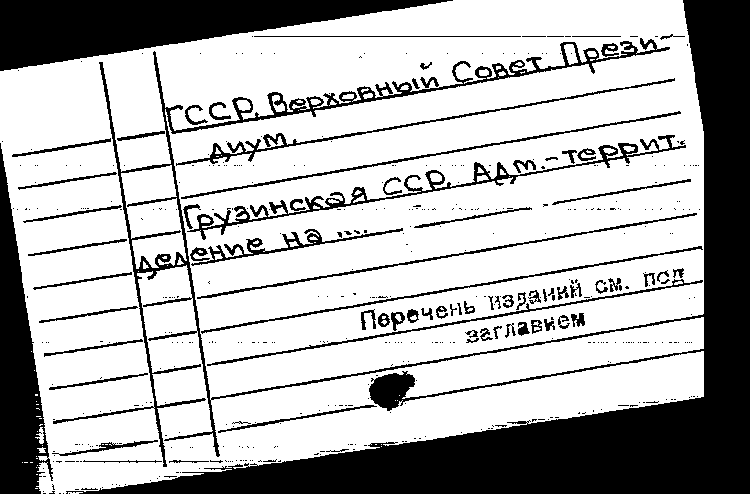 ГССР. Верховный Совет. Прези-
диум.
Грузинская ССР. Адм.-террит.
деление на ....
Перечень изданий см. под
заглавием